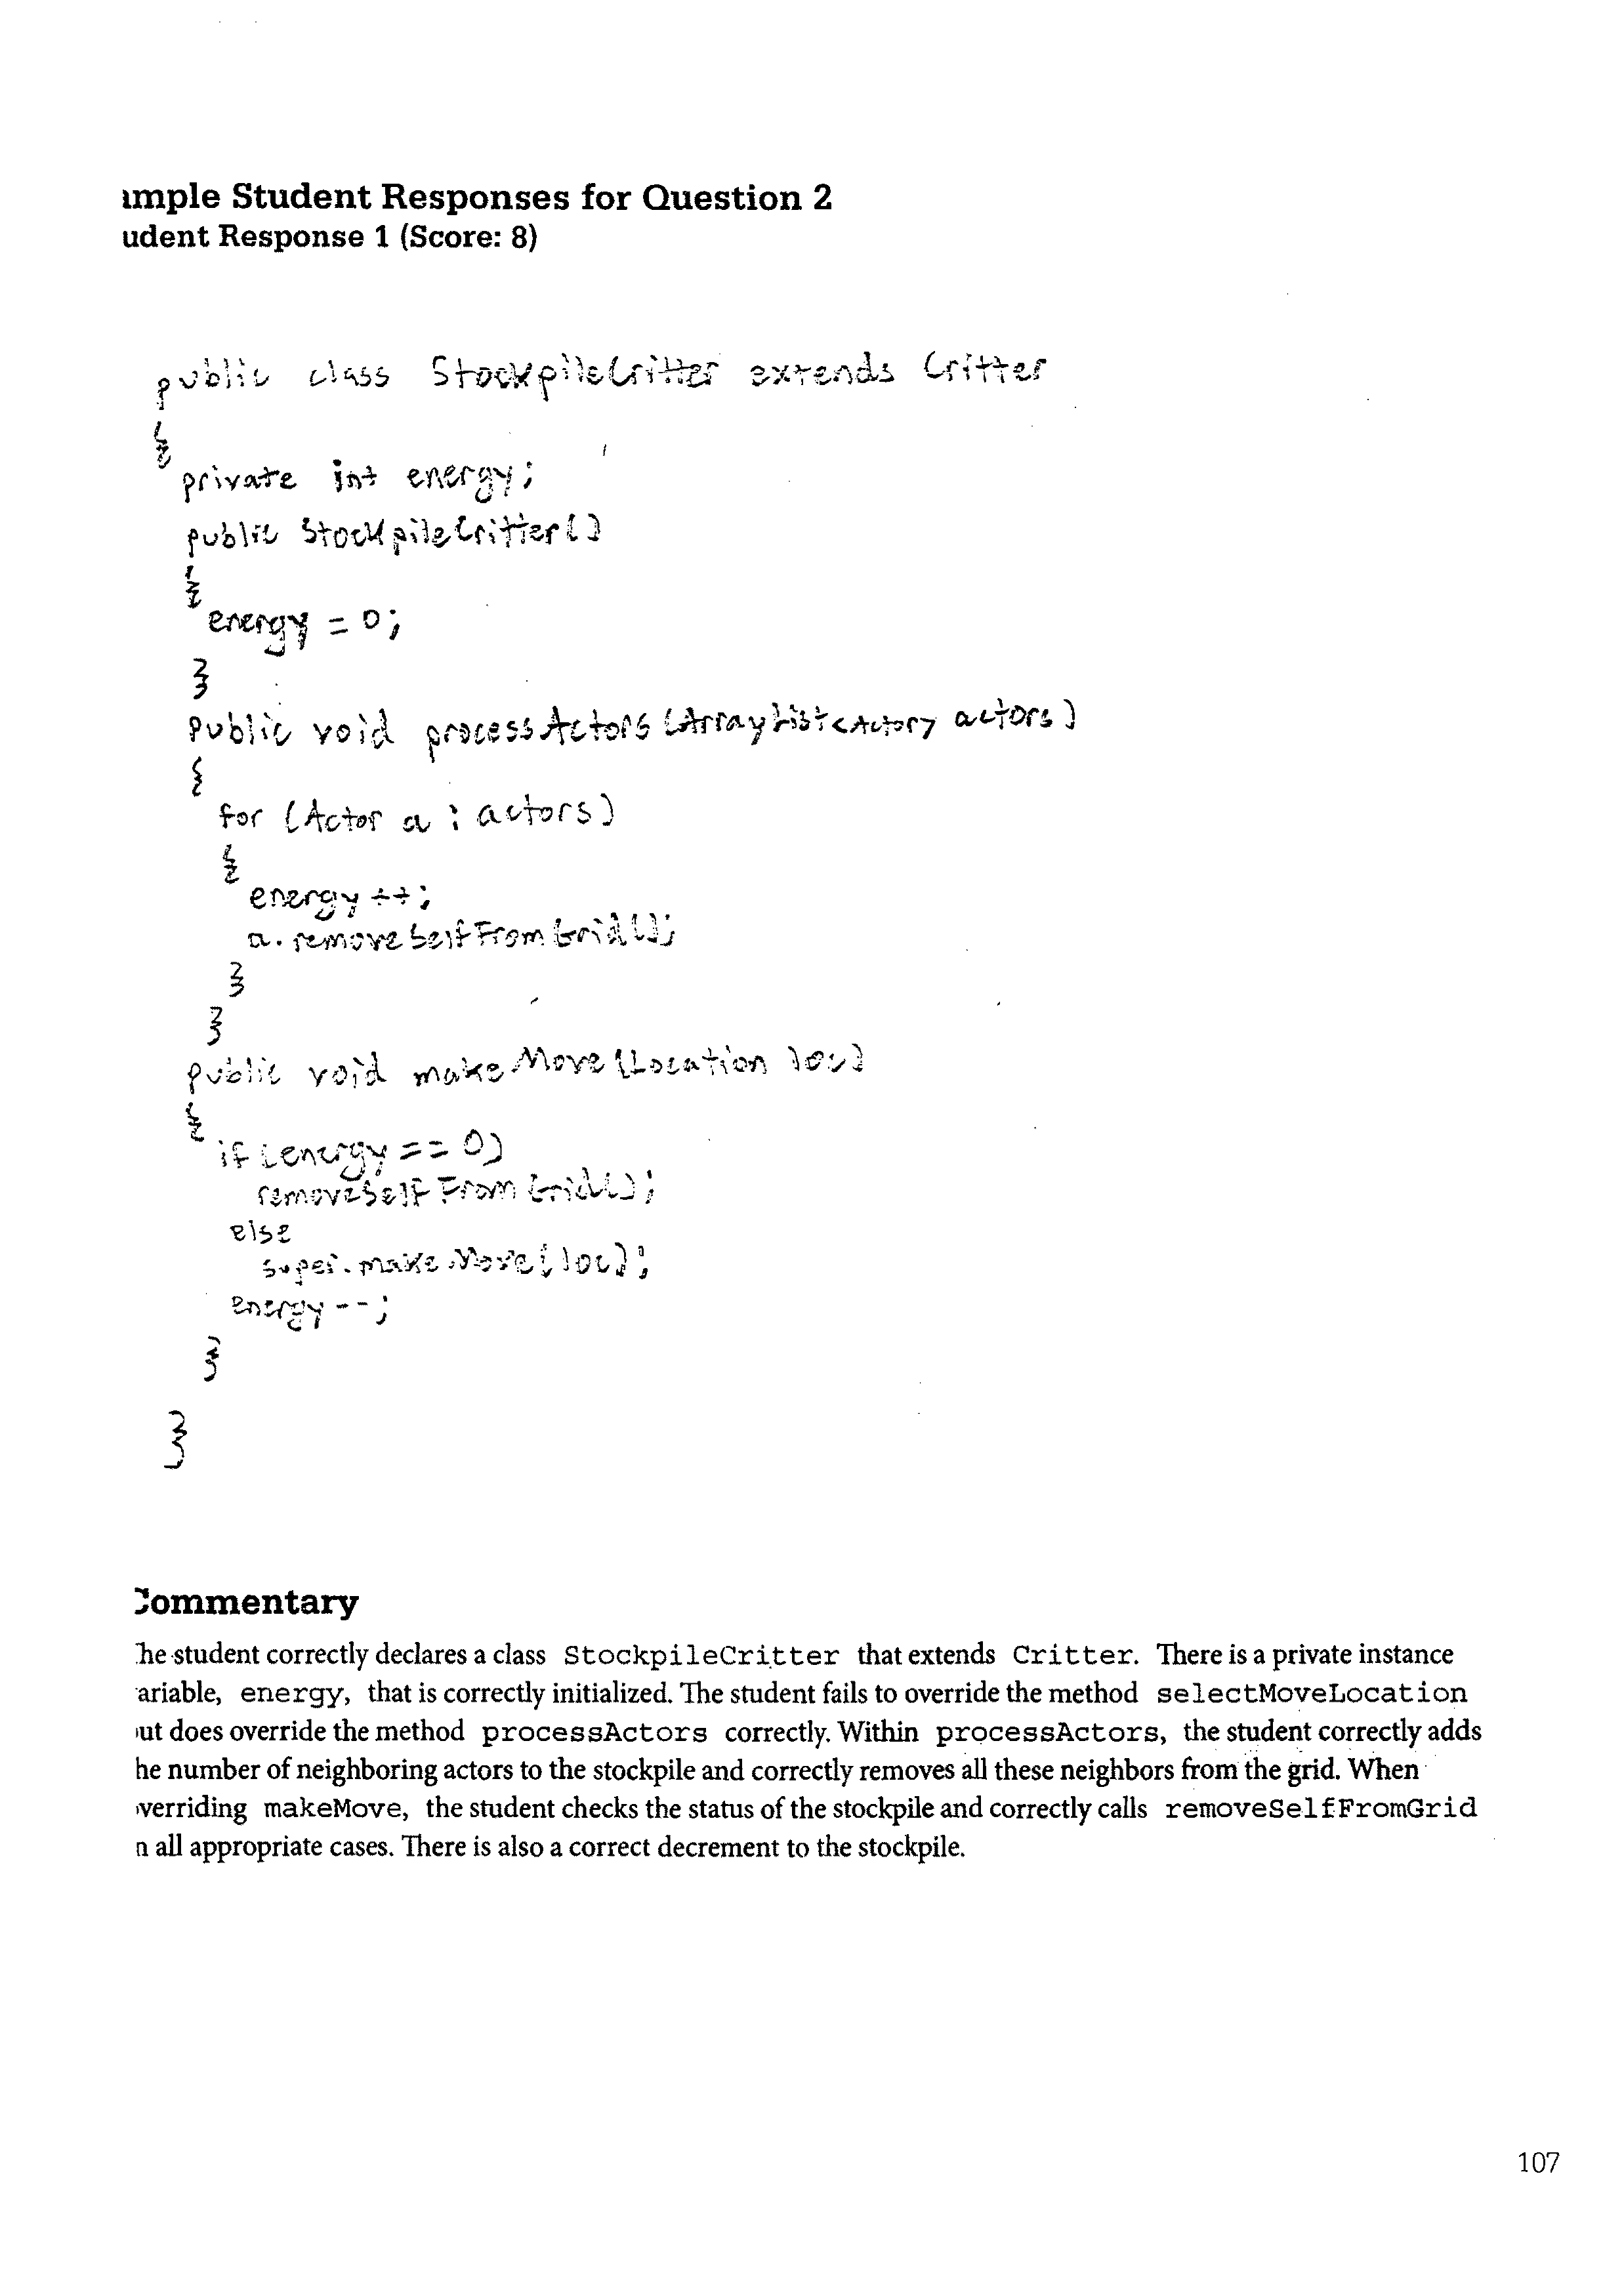 ımple Student Responses for Question 2
udent Response 1 (Score: 8)
public class StockpileCritter extends Critter
{
private int energy;
public StockpileCritter()
{
energy = 0;
}
public void processActors (ArrayList<Actor> actors)
{
for (Actor a : actors)
{
energy ++;
a. removeSelfFromGrid();
}
}
public void makeMove (Location loc)
{
if (energy == 0)
removeSelfFromGrid();
else
super.makeMove(loc);
energy --;
}
}
Commentary
he student correctly declares a class StockpileCritter that extends Critter. There is a private instance
ariable, energy, that is correctly initialized. The student fails to override the method selectMoveLocation
ut does override the method processActors correctly. Within processActors, the student correctly adds
he number of neighboring actors to the stockpile and correctly removes all these neighbors from the grid. When
verriding makeMove, the student checks the status of the stockpile and correctly calls removeSelfFromGrid
n all appropriate cases. There is also a correct decrement to the stockpile.
107